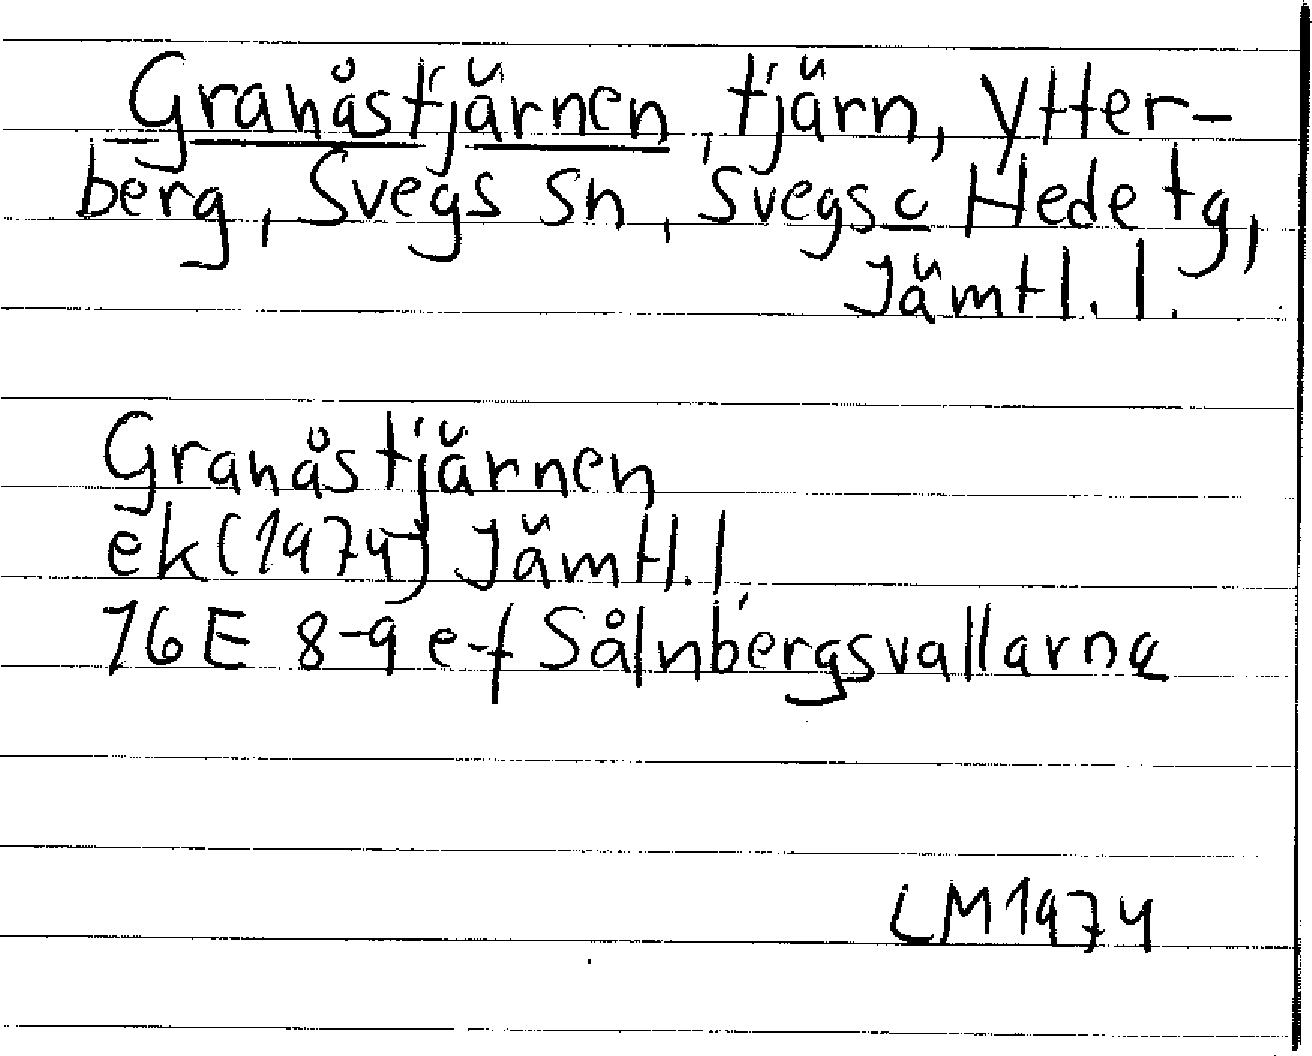 Granåstjärnen, tjärn, Ytter-
berg, Svegs sn, Svegs c Hede tg,
Jämtl. l.
Granåstjärnen
ek (1974) Jämtl. l
16E 8-9 e-f Sålnbergsvallarna
LM 1974